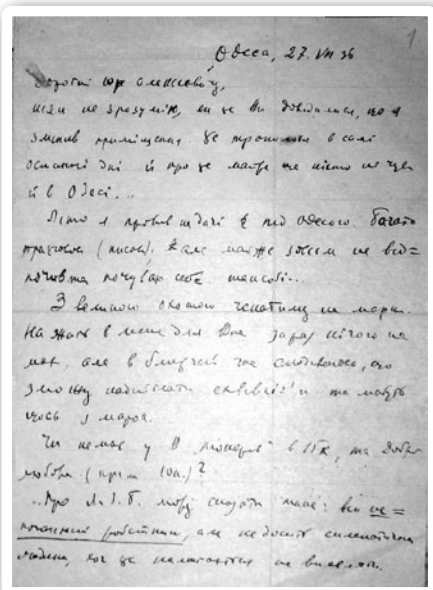 1
Одеса, 27. VIII 36
Дорогий Юре Олексієвичу,
ніяк не зрозумію, як це Ви довідалися, що я
змінив приміщення. Це трапилося в самі
останні дні й про це майже ще ніхто не чув
й в Одесі...
Літо я провів на дачі під Одесою. Багато
працював (писав), але майже зовсім не від=
почив та почуваю себе
З великою охотою на марки.
На жаль в мене для Вас зараз нічого не
має, але в близчий час сподіваюсь, що
зможу надіслати й та мабуть
щось з марок.
Чи немає у В 15к, та
(крім 10к.)?
Про Л. І. Б. можу сказати таке: він не=
робітник, але не досить симпатична
людина, хоч це не